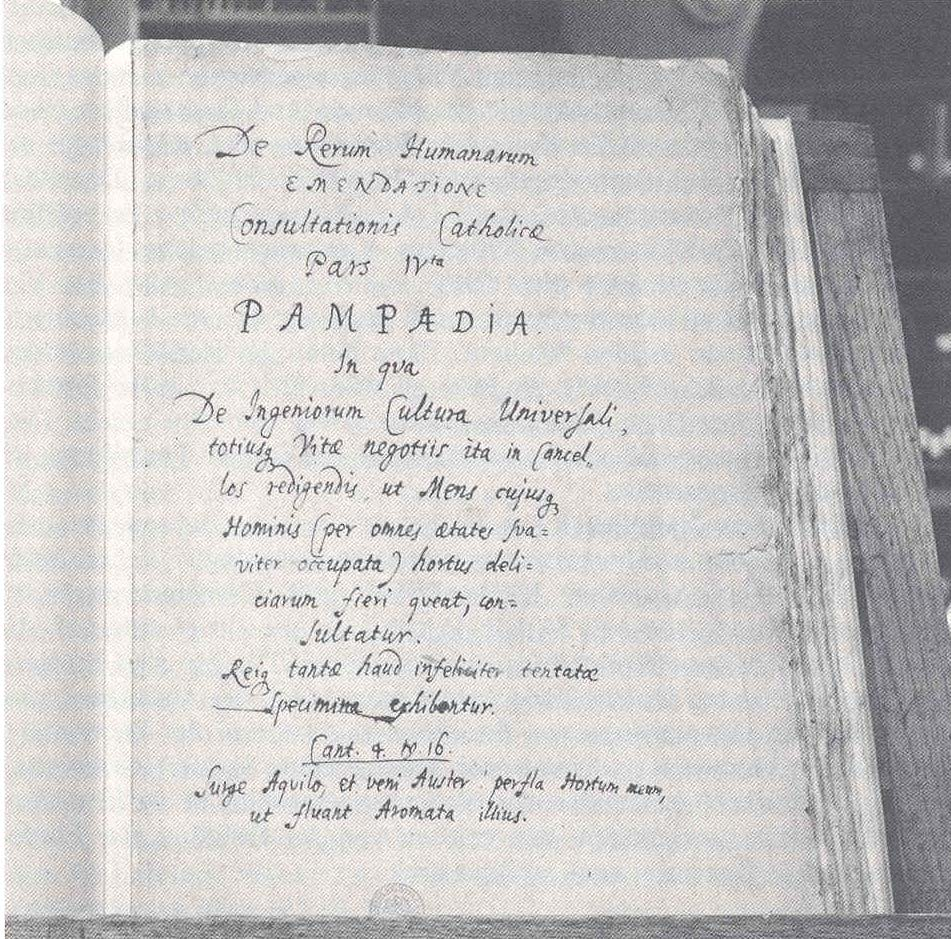 De Rerum Humanarum
EMENDATIONE
Consultationis Catholicæ
Pars IVta
PAMPÆDIA.
In qva
De Ingeniorum Cultura Universali,
totiusq Vitæ negotiis ita in Cancel„
los redigendis, ut Mens cujusq
Hominis (per omnes ætates sva=
viter occupata) hortus deli=
ciarum fieri qveat, con=
sultatur.
Reiq tantæ haud infeliciter tentatæ
Specimina exhibentur.
Cant. 4. 16.
Surge Aquilo, et veni Auster! perfla Hortum meum,
ut fluant Aromata illius.